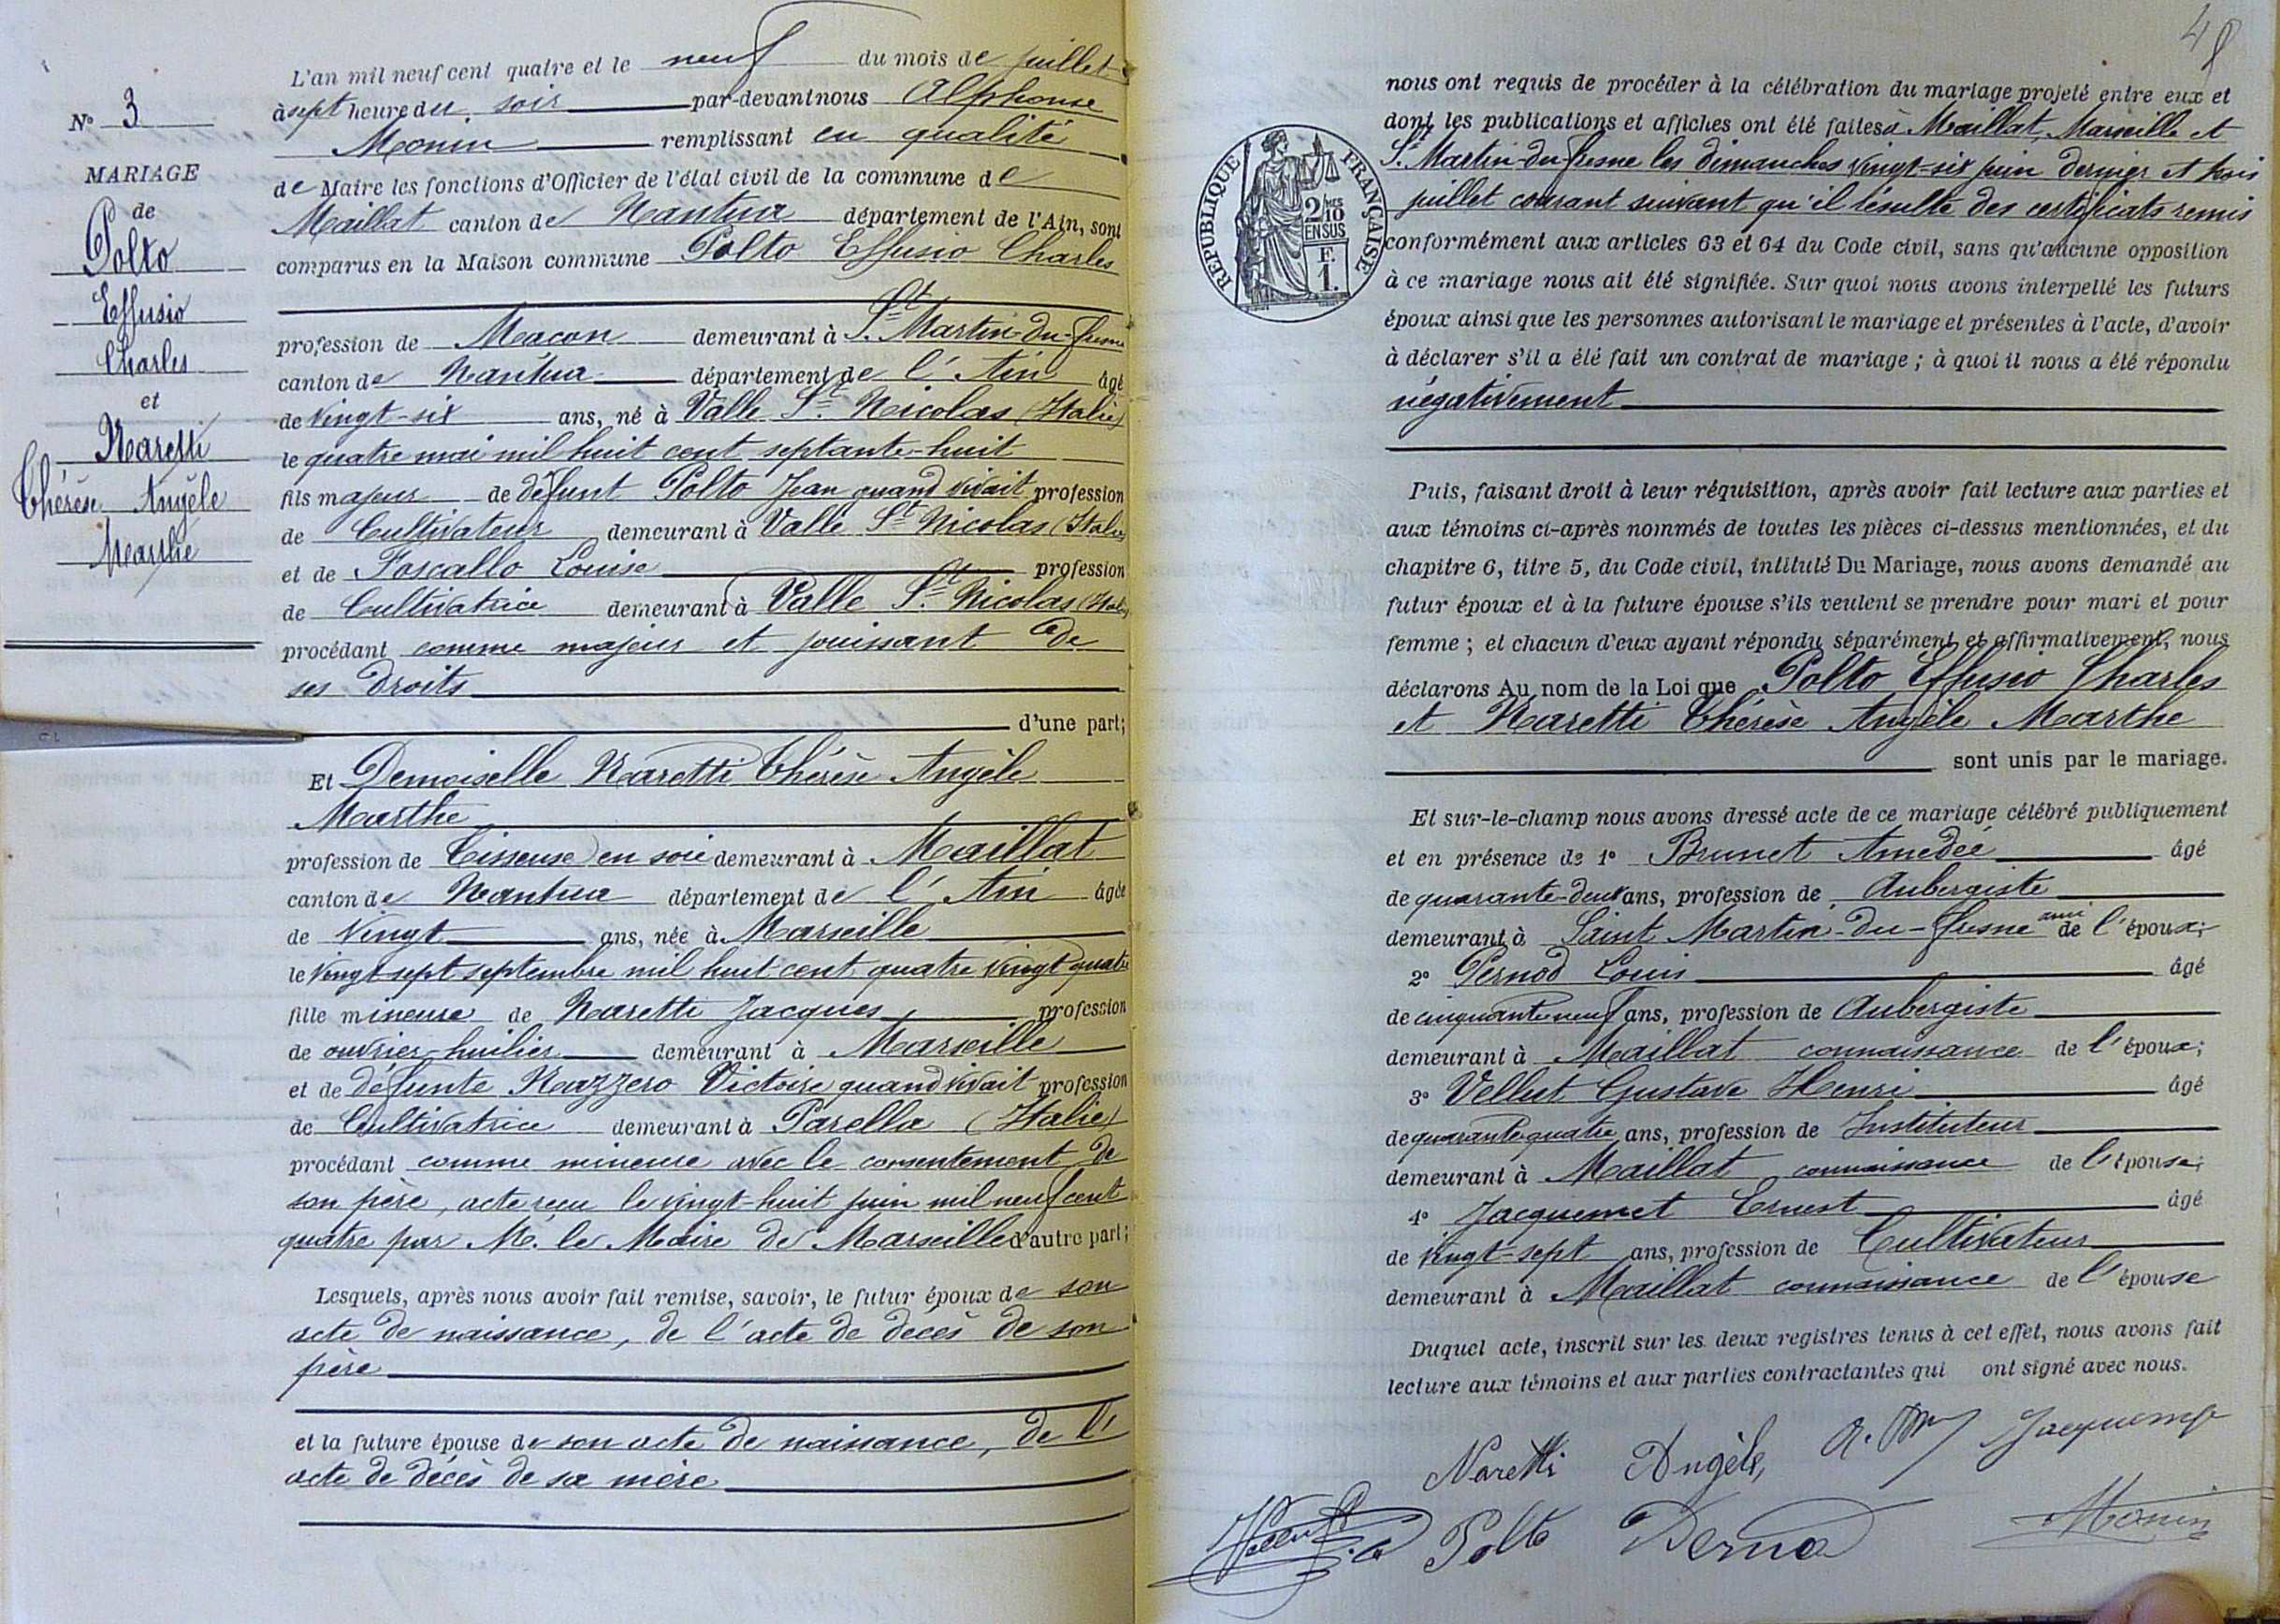 N° 3
MARIAGE
de
Polto
Effusio
Charles
et
Naretti
Thérèse Angèle
Marthe
L'an mil neuf cent quatre et le neuf du mois de juillet
à sept heure du soir par-devant nous Alphonse
Monin remplissant en qualité
de Maire les fonctions d'Officier de l'état civil de la commune de
Maillat canton de Nantua département de l'Ain, sont
comparus en la Maison commune Polto Effusio Charles
profession de Maçon demeurant à St Martin-du-fresne
canton de Nantua département de l'Ain âgé
de vingt-six ans, né à Valle St Nicolas (Italie)
le quatre mai mil huit cent septante-huit
fils majeur de défunt Polto Jean quand vivait profession
de Cultivateur demeurant à Valle St Nicolas (Italie)
et de Foscallo Louise profession
de Cultivatrice demeurant à Valle St Nicolas (Italie)
procédant comme majeur et jouissant de
ses droits
d'une part;
Et Demoiselle Naretti Thérèse Angèle
Marthe
profession de Tisseuse en soie demeurant à Maillat
canton de Nantua département de l'Ain âgée
de vingt ans, née à Marseille
le vingt sept septembre mil huit cent quatre vingt quatre
fille mineure de Naretti Jacques profession
de ouvrier-huilier demeurant à Marseille
et de défunte Nazzero Victoire quand vivait profession
de Cultivatrice demeurant à Parella (Italie)
procédant comme mineure avec le consentement de
son père, acte reçu le vingt-huit juin mil neuf cent
quatre par M. le Maire de Marseille d'autre part;
Lesquels, après nous avoir fait remise, savoir, le futur époux de son
acte de naissance, de l'acte de decès de son
père
et la future épouse de son acte de naissance, de l'
acte de décès de sa mère
48
RÉPUBLIQUE FRANÇAISE
2/10
EN SUS
F.
1.
nous ont requis de procéder à la célébration du mariage projeté entre eux et
dont les publications et affiches ont été faites à Maillat, Marseille et
St Martin-du-fresne les dimanches vingt-six juin dernier et trois
juillet courant suivant qu'il résulte des certificats remis
conformément aux articles 63 et 64 du Code civil, sans qu'aucune opposition
à ce mariage nous ait été signifiée. Sur quoi nous avons interpellé les futurs
époux ainsi que les personnes autorisant le mariage et présentes à l'acte, d'avoir
à déclarer s'il a été fait un contrat de mariage ; à quoi il nous a été répondu
négativement
Puis, faisant droit à leur réquisition, après avoir fait lecture aux parties et
aux témoins ci-après nommés de toutes les pièces ci-dessus mentionnées, et du
chapitre 6, titre 5, du Code civil, intitulé Du Mariage, nous avons demandé au
futur époux et à la future épouse s'ils veulent se prendre pour mari et pour
femme ; et chacun d'eux ayant répondu séparément et affirmativement, nous
déclarons Au nom de la Loi que Polto Effusio Charles
et Naretti Thérèse Angèle Marthe
sont unis par le mariage.
Et sur-le-champ nous avons dressé acte de ce mariage célébré publiquement
et en présence de 1° Brunet Amedée âgé
de quarante-deux ans, profession de Aubergiste
demeurant à Saint Martin-du-fresne ami de l'époux;
2° Pernod Louis âgé
de cinquante neuf ans, profession de Aubergiste
demeurant à Maillat connaissance de l'époux;
3° Vellut Gustave Henri âgé
de quarante quatre ans, profession de Instituteur
demeurant à Maillat connaissance de l'épouse;
4° Jacquemet Ernest âgé
de vingt-sept ans, profession de Cultivateur
demeurant à Maillat connaissance de l'épouse
Duquel acte, inscrit sur les deux registres tenus à cet effet, nous avons fait
lecture aux témoins et aux parties contractantes qui ont signé avec nous.
Naretti Angèle, Jacquemet
Vellut Polto Pernod Monin